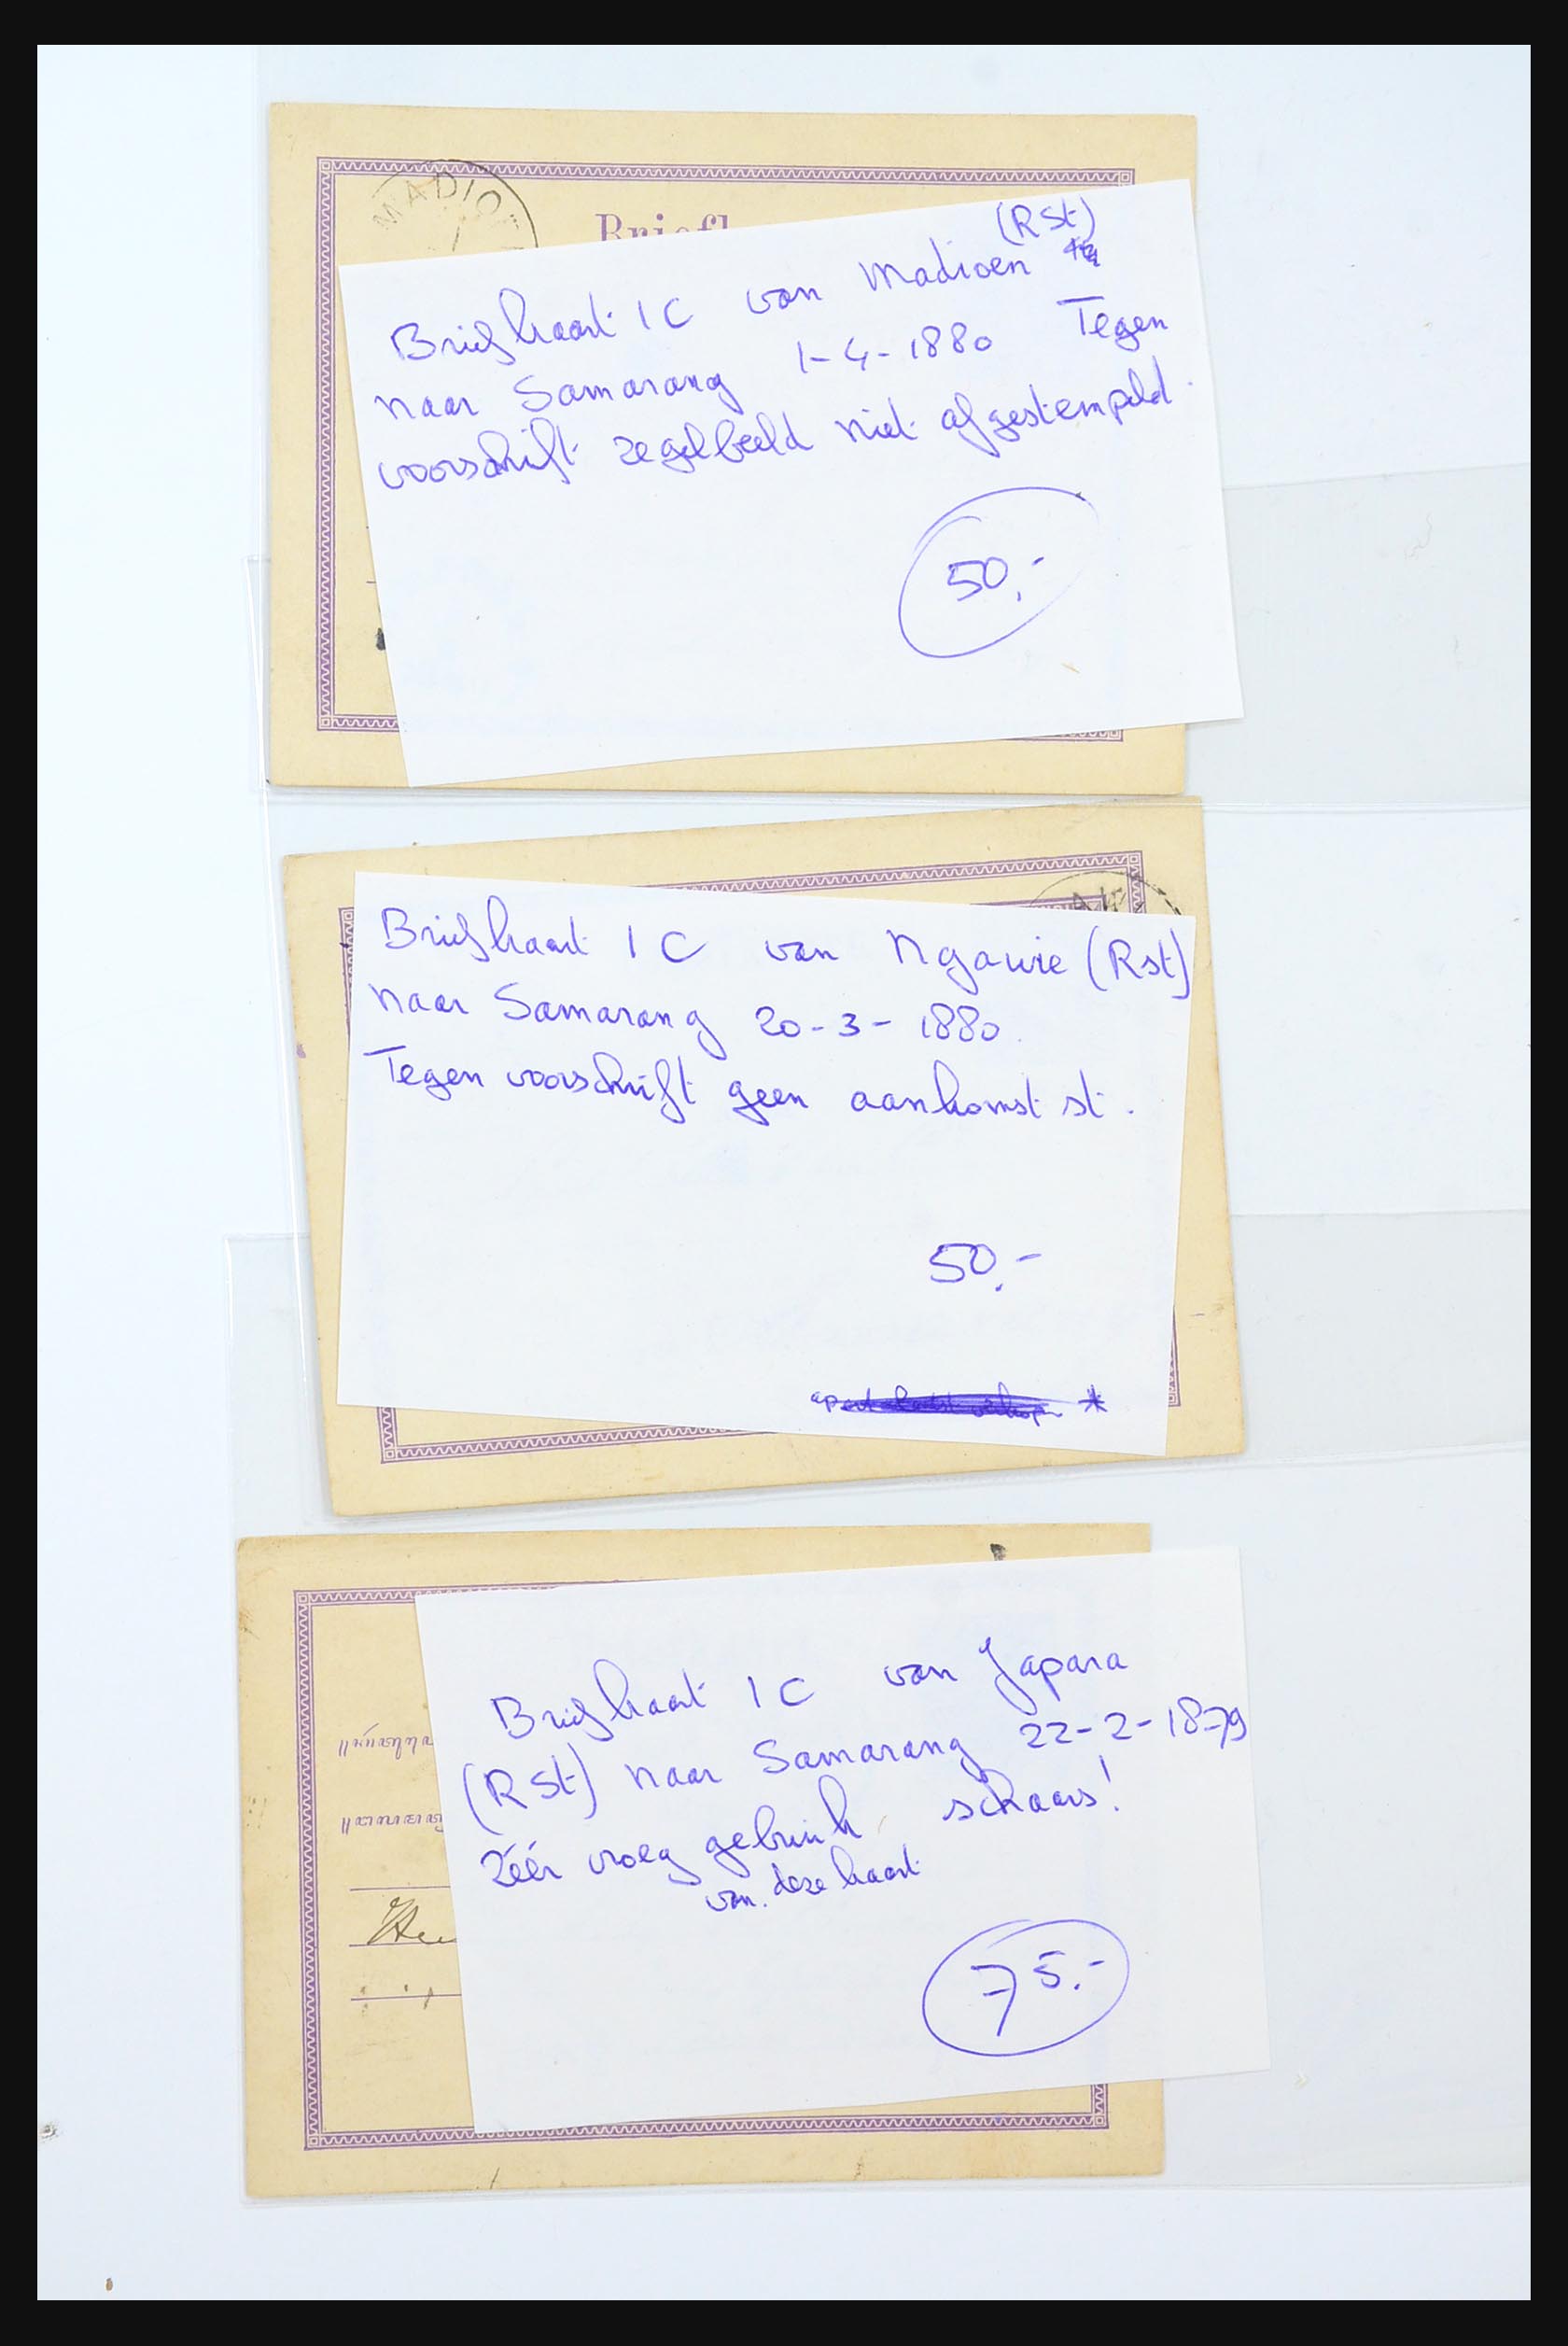 MADIOE
(RSt)
Briefkaart 1 C van Madioen
naar Samarang 1-4-1880 Tegen
voorschrift zegelbeeld niet afgestempeld.
50.-
Briefkaart 1 C van Ngawie (Rst)
naar Samarang 20-3-1880.
Tegen voorschrift geen aankomst st.
50.-
*
Briefkaart 1 C van Japara
(RSt) naar Samarang 22-2-1879
zéér vroeg gebruik schaars!
van deze kaart
75.-